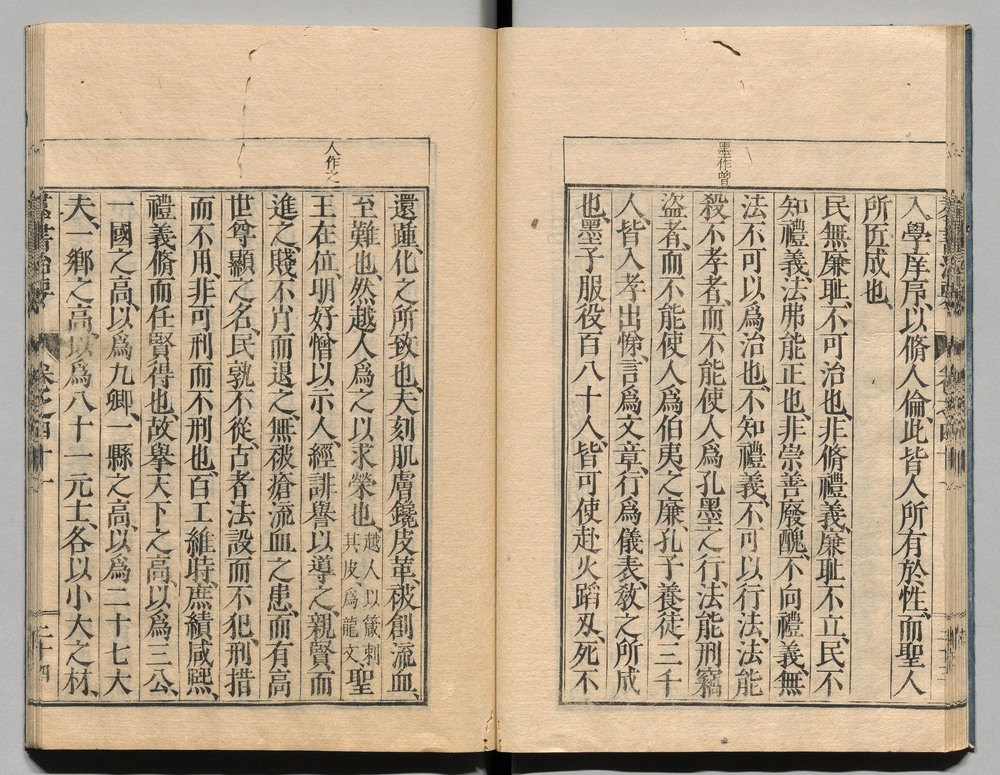 墨作曽
入學庠序、以脩人倫、此皆人所有於性、而聖人
所匠成也、
民無廉耻、不可治也、非脩禮義、廉耻不立、民不
知禮義、法弗能正也、非崇善廢醜、不向禮義、無
法不可以爲治也、不知禮義、不可以行法、法能
殺不孝者、而不能使人爲孔墨之行、法能刑竊
盗者、而不能使人爲伯夷之廉、孔子養徒三千
人、皆入孝出悌、言爲文章、行爲儀表、教之所成
也、墨子服役百八十人、皆可使赴火蹈刄、死不
人作之
還踵、化之所致也、夫刻肌膚鑱皮革、被創流血、
至難也、然越人爲之以求榮也、越人以箴刺其皮爲龍文、聖
王在位、明好憎以示人、經誹譽以導之、親賢而
進之、賤不肖而退之、無被瘡流血之患、而有高
世尊顯之名、民孰不從、古者法設而不犯、刑措
而不用、非可刑而不刑也、百工維時、庶績咸熙、
禮義脩而任賢得也、故擧天下之高、以爲三公、
一國之高、以爲九卿、一縣之高、以爲二十七大
夫、一鄉之高、以爲八十一元士、各以小大之材、
羣書治要 卷之四十一 二十四